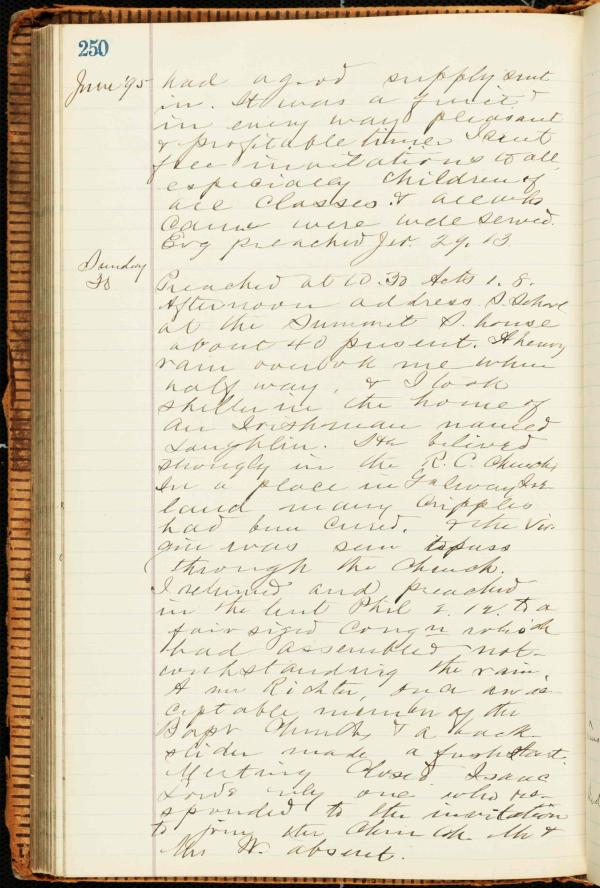 250
June '95 had a good supply sent
in. It was a
in every way pleasant
& profitable time. I sent
free invitations to all
especially children of
all classes & all who
came were well served.
Evg preached Jer. 29. 13
Sunday
30
Preached at 10.30 Acts 1. 8.
Afternoon address S School
at the Summit S. house
about 40 present. A heavy
rain overtook me when
half way, & I took
shelter in the home of
an Irishman named
Laughlin. He belived
strongly in the R. C. Church
In a place in Galway Ire-
land many cripples
had been cured, & the Vir-
gin was seen to pass
through the Church.
I returned and preached
in the tent Phil 2. 12. to a
fair sized Congn which
had assembled not-
withstanding the rain,
A Mr Richter, once an ac-
ceptable member of the
Bapt Church & a back-
slider made a fresh start.
Meeting closed. Isaac
Lords only one who res-
ponded to the invitation
to join the Church. Mr &
Mrs W. absent.